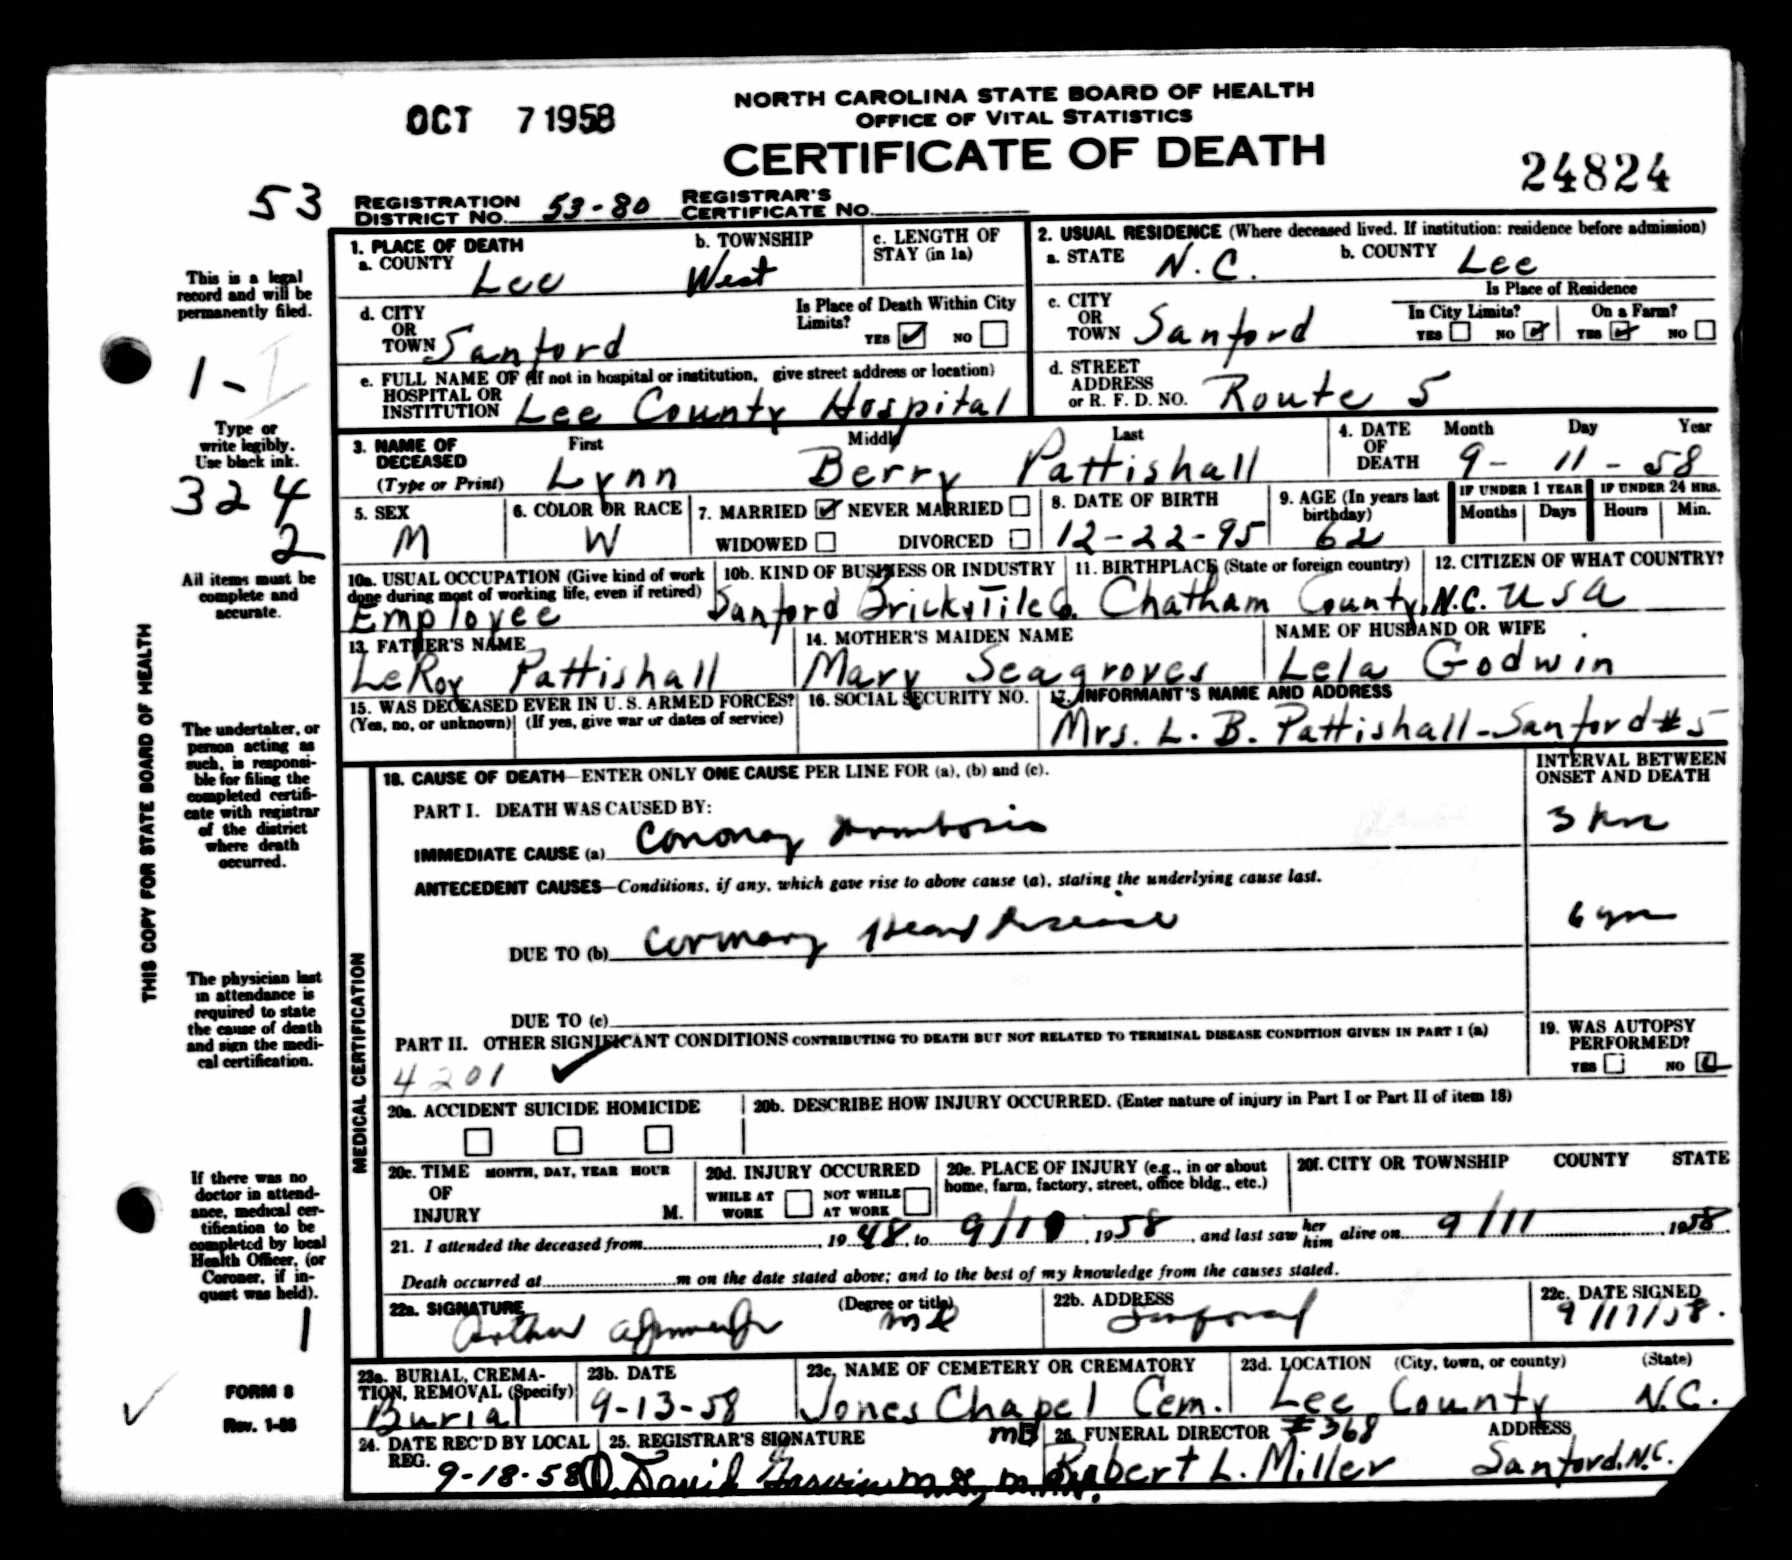 OCT 7 1958
NORTH CAROLINA STATE BOARD OF HEALTH
OFFICE OF VITAL STATISTICS
CERTIFICATE OF DEATH
24824
53
REGISTRATION DISTRICT NO. 53-80 REGISTRAR'S CERTIFICATE NO.
This is a legal
record and will be
permanently filed.
1 - I
Type or
write legibly.
Use black ink.
324
2
All items must be
complete and
accurate.
THIS COPY FOR STATE BOARD OF HEALTH
The undertaker, or
person acting as
such, is responsi-
ble for filing the
completed certifi-
cate with registrar
of the district
where death
occurred.
The physician last
in attendance is
required to state
the cause of death
and sign the medi-
cal certification.
If there was no
doctor in attend-
ance, medical cer-
tification to be
completed by local
Health Officer, (or
Coroner, if in-
quest was held).
1
FORM 8
Rev. 1-56
1. PLACE OF DEATH
a. COUNTY Lee
b. TOWNSHIP West
c. LENGTH OF STAY (in 1a)
2. USUAL RESIDENCE (Where deceased lived. If institution: residence before admission)
a. STATE N.C.
b. COUNTY Lee
d. CITY OR TOWN Sanford
Is Place of Death Within City Limits? YES ✓ NO
c. CITY OR TOWN Sanford
Is Place of Residence
In City Limits? YES NO ✓
On a Farm? YES ✓ NO
e. FULL NAME OF (If not in hospital or institution, give street address or location)
HOSPITAL OR INSTITUTION Lee County Hospital
d. STREET ADDRESS or R. F. D. NO. Route 5
3. NAME OF DECEASED (Type or Print)
First Lynn
Middle Berry
Last Pattishall
4. DATE OF DEATH Month Day Year
9- 11 - 58
5. SEX M
6. COLOR OR RACE W
7. MARRIED ✓ NEVER MARRIED
WIDOWED DIVORCED
8. DATE OF BIRTH 12-22-95
9. AGE (In years last birthday) 62
IF UNDER 1 YEAR Months Days
IF UNDER 24 HRS. Hours Min.
10a. USUAL OCCUPATION (Give kind of work done during most of working life, even if retired)
Employee
10b. KIND OF BUSINESS OR INDUSTRY
Sanford Brick & Tile Co.
11. BIRTHPLACE (State or foreign country)
Chatham County, N.C.
12. CITIZEN OF WHAT COUNTRY?
USA
13. FATHER'S NAME
LeRoy Pattishall
14. MOTHER'S MAIDEN NAME
Mary Seagroves
NAME OF HUSBAND OR WIFE
Lela Godwin
15. WAS DECEASED EVER IN U. S. ARMED FORCES?
(Yes, no, or unknown) (If yes, give war or dates of service)
16. SOCIAL SECURITY NO.
17. INFORMANT'S NAME AND ADDRESS
Mrs. L. B. Pattishall - Sanford #5
MEDICAL CERTIFICATION
18. CAUSE OF DEATH—ENTER ONLY ONE CAUSE PER LINE FOR (a), (b) and (c).
INTERVAL BETWEEN ONSET AND DEATH
PART I. DEATH WAS CAUSED BY:
IMMEDIATE CAUSE (a) Coronary thrombosis
3 hrs
ANTECEDENT CAUSES—Conditions, if any, which gave rise to above cause (a), stating the underlying cause last.
DUE TO (b) Coronary Heart Disease
6 yrs
DUE TO (c)
PART II. OTHER SIGNIFICANT CONDITIONS CONTRIBUTING TO DEATH BUT NOT RELATED TO TERMINAL DISEASE CONDITION GIVEN IN PART I (a)
4201 ✓
19. WAS AUTOPSY PERFORMED?
YES NO ✓
20a. ACCIDENT SUICIDE HOMICIDE
20b. DESCRIBE HOW INJURY OCCURRED. (Enter nature of injury in Part I or Part II of item 18)
20c. TIME OF INJURY MONTH, DAY, YEAR HOUR M.
20d. INJURY OCCURRED
WHILE AT WORK NOT WHILE AT WORK
20e. PLACE OF INJURY (e.g., in or about home, farm, factory, street, office bldg., etc.)
20f. CITY OR TOWNSHIP COUNTY STATE
21. I attended the deceased from 1948, to 9/11, 1958, and last saw her him alive on 9/11, 1958.
Death occurred at m on the date stated above; and to the best of my knowledge from the causes stated.
22a. SIGNATURE (Degree or title)
Arthur MD
22b. ADDRESS
Sanford
22c. DATE SIGNED
9/17/58.
23a. BURIAL, CREMATION, REMOVAL (Specify)
Burial
23b. DATE
9-13-58
23c. NAME OF CEMETERY OR CREMATORY
Jones Chapel Cem.
23d. LOCATION (City, town, or county) (State)
Lee County N.C.
24. DATE REC'D BY LOCAL REG.
9-18-58
25. REGISTRAR'S SIGNATURE
David
26. FUNERAL DIRECTOR #368 ADDRESS
Robert L. Miller Sanford, N.C.